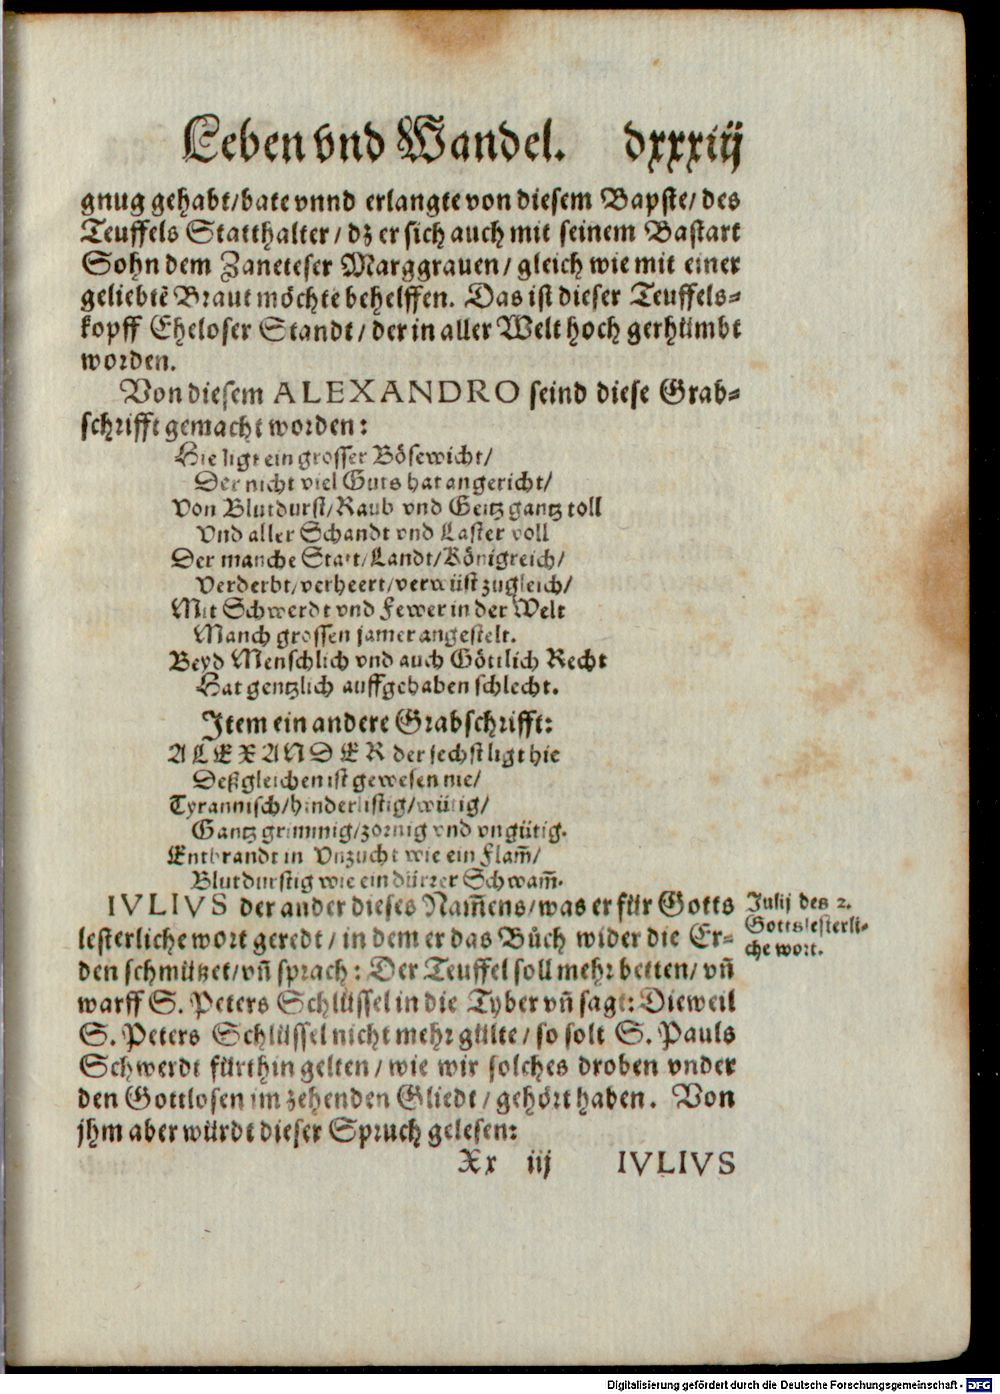 Leben vnd Wandel. dxxxiij
gnug gehabt/bate vnnd erlangte von diesem Bapste/ des
Teuffels Statthalter/ dz er sich auch mit seinem Bastart
Sohn dem Zaneteser Marggrauen/ gleich wie mit einer
geliebtē Braut möchte behelffen. Das ist dieser Teuffels-
kopff Eheloser Standt/ der in aller Welt hoch gerhümbt
worden.
Von diesem ALEXANDRO seind diese Grab-
schrifft gemacht worden:
Hie ligt ein grosser Bösewicht/
Der nicht viel Guts hat angericht/
Von Blutdurst/Raub vnd Geitz gantz toll
Vnd aller Schandt vnd Laster voll
Der manche Statt/Landt/Königreich/
Verderbt/verheert/verwüst zugleich/
Mit Schwerdt vnd Fewer in der Welt
Manch grossen jamer angestelt.
Beyd Menschlich vnd auch Göttlich Recht
Hat gentzlich auffgehaben schlecht.
Item ein andere Grabschrifft:
ALEXANDER der sechst ligt hie
Deßgleichen ist gewesen nie/
Tyrannisch/hinderlistig/wütig/
Gantz grimmig/zornig vnd vngütig.
Entbrandt in Vnzucht wie ein Flam̄/
Blutdurstig wie ein dürrer Schwam̄.
IVLIVS der ander dieses Nam̄ens/was er für Gotts
lesterliche wort geredt/ in dem er das Bůch wider die Er-
den schmützet/vn̄ sprach: Der Teuffel soll mehr betten/ vn̄
warff S. Peters Schlüssel in die Tyber vn̄ sagt: Dieweil
S. Peters Schlüssel nicht mehr gülte/ so solt S. Pauls
Schwerdt fürthin gelten/ wie wir solches droben vnder
den Gottlosen im zehenden Gliedt/ gehört haben. Von
jhm aber würdt dieser Spruch gelesen:
Julij des 2.
Gottslesterli-
che wort.
Xx iij IVLIVS
Digitalisierung gefördert durch die Deutsche Forschungsgemeinschaft - DFG